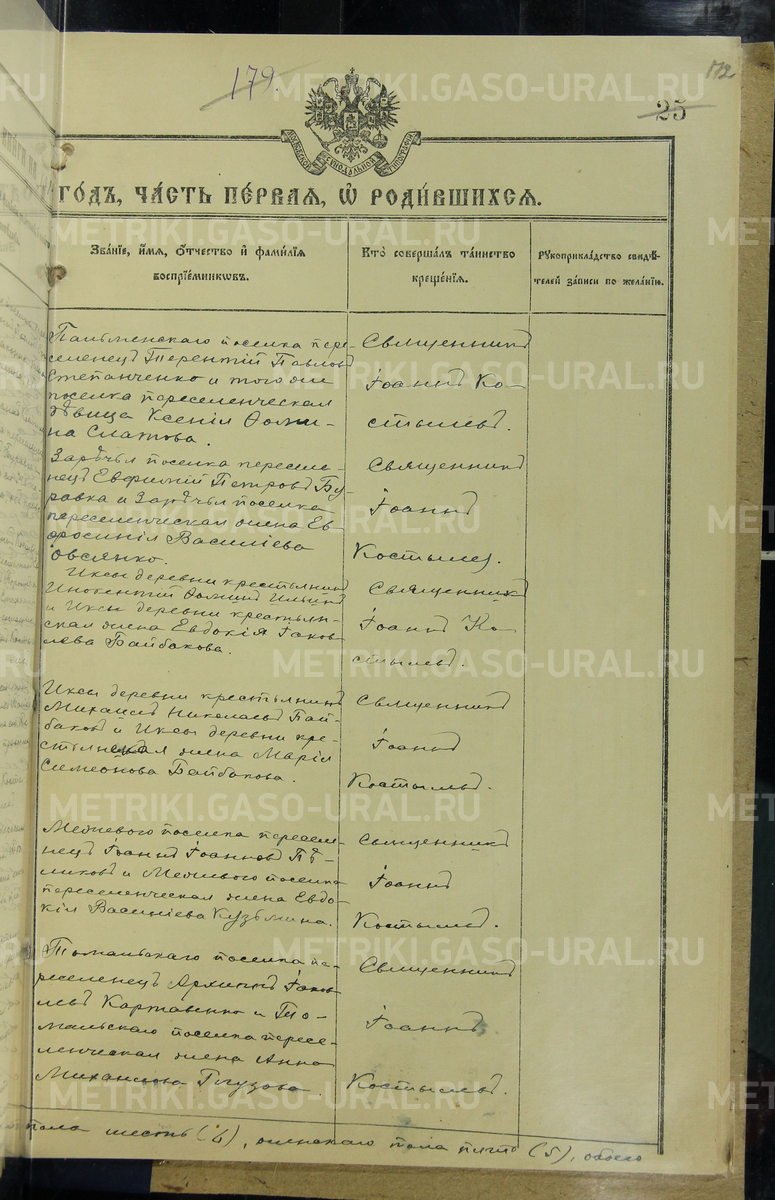 179.
172
25
МОСКОВСКОЙ СѴНОДАЛЬНОЙ ТИПОГРАФІИ
ГОДЪ, ЧАСТЬ ПЕРВАЯ, Ѿ РОДИВШИХСЯ.
Званіе, имя, Отчество и фамилія воспріемниковъ.
Кто совершалъ таинство крещенія.
Рукоприкладство свидѣтелей записи по желанію.
поселка пере-
селенецъ Терентій Павловъ
Степанченко и того же
поселка переселенческая
дѣвица Ксенія Ѳоми-
на Слатова.
Священникъ
Іоаннъ Ко-
стылевъ.
Зарѣчья поселка пересele-
нецъ Евфимій Петровъ Бу-
равка и Зарѣчья поселка
переселенческая жена Ев-
фросинія Василіева
Овсянко.
Священникъ
Іоаннъ
Костылев.
Иксы деревни крестьянинъ
Инокентій Ѳоминъ Ильинъ
и Иксы деревни крестьян-
ская жена Евдокія Іаков-
лева Байбакова.
Священникъ
Іоаннъ Ко-
стылевъ.
Иксы деревни крестьянинъ
Михаилъ Николаевъ Бай-
баковъ и Иксы деревни кре-
стьянская жена Марія
Симеонова Байбакова.
Священникъ
Іоаннъ
Костылевъ.
Межевого поселка пересele-
нецъ Іоаннъ Іоанновъ
и Межевого поселка
переселенческая жена Евдо-
кія Василіева Кузьмина.
Священникъ
Іоаннъ
Костылевъ.
поселка пе-
реселенецъ Архиппъ Іаков-
левъ Картавенко и То-
мальскаго поселка пересе-
ленческая жена Анна
Михаилова Глузова.
Священникъ
Іоаннъ
Костылевъ.
пола шесть (6), женскаго пола пять (5), обоего
METRIKI.GASO-URAL.RU